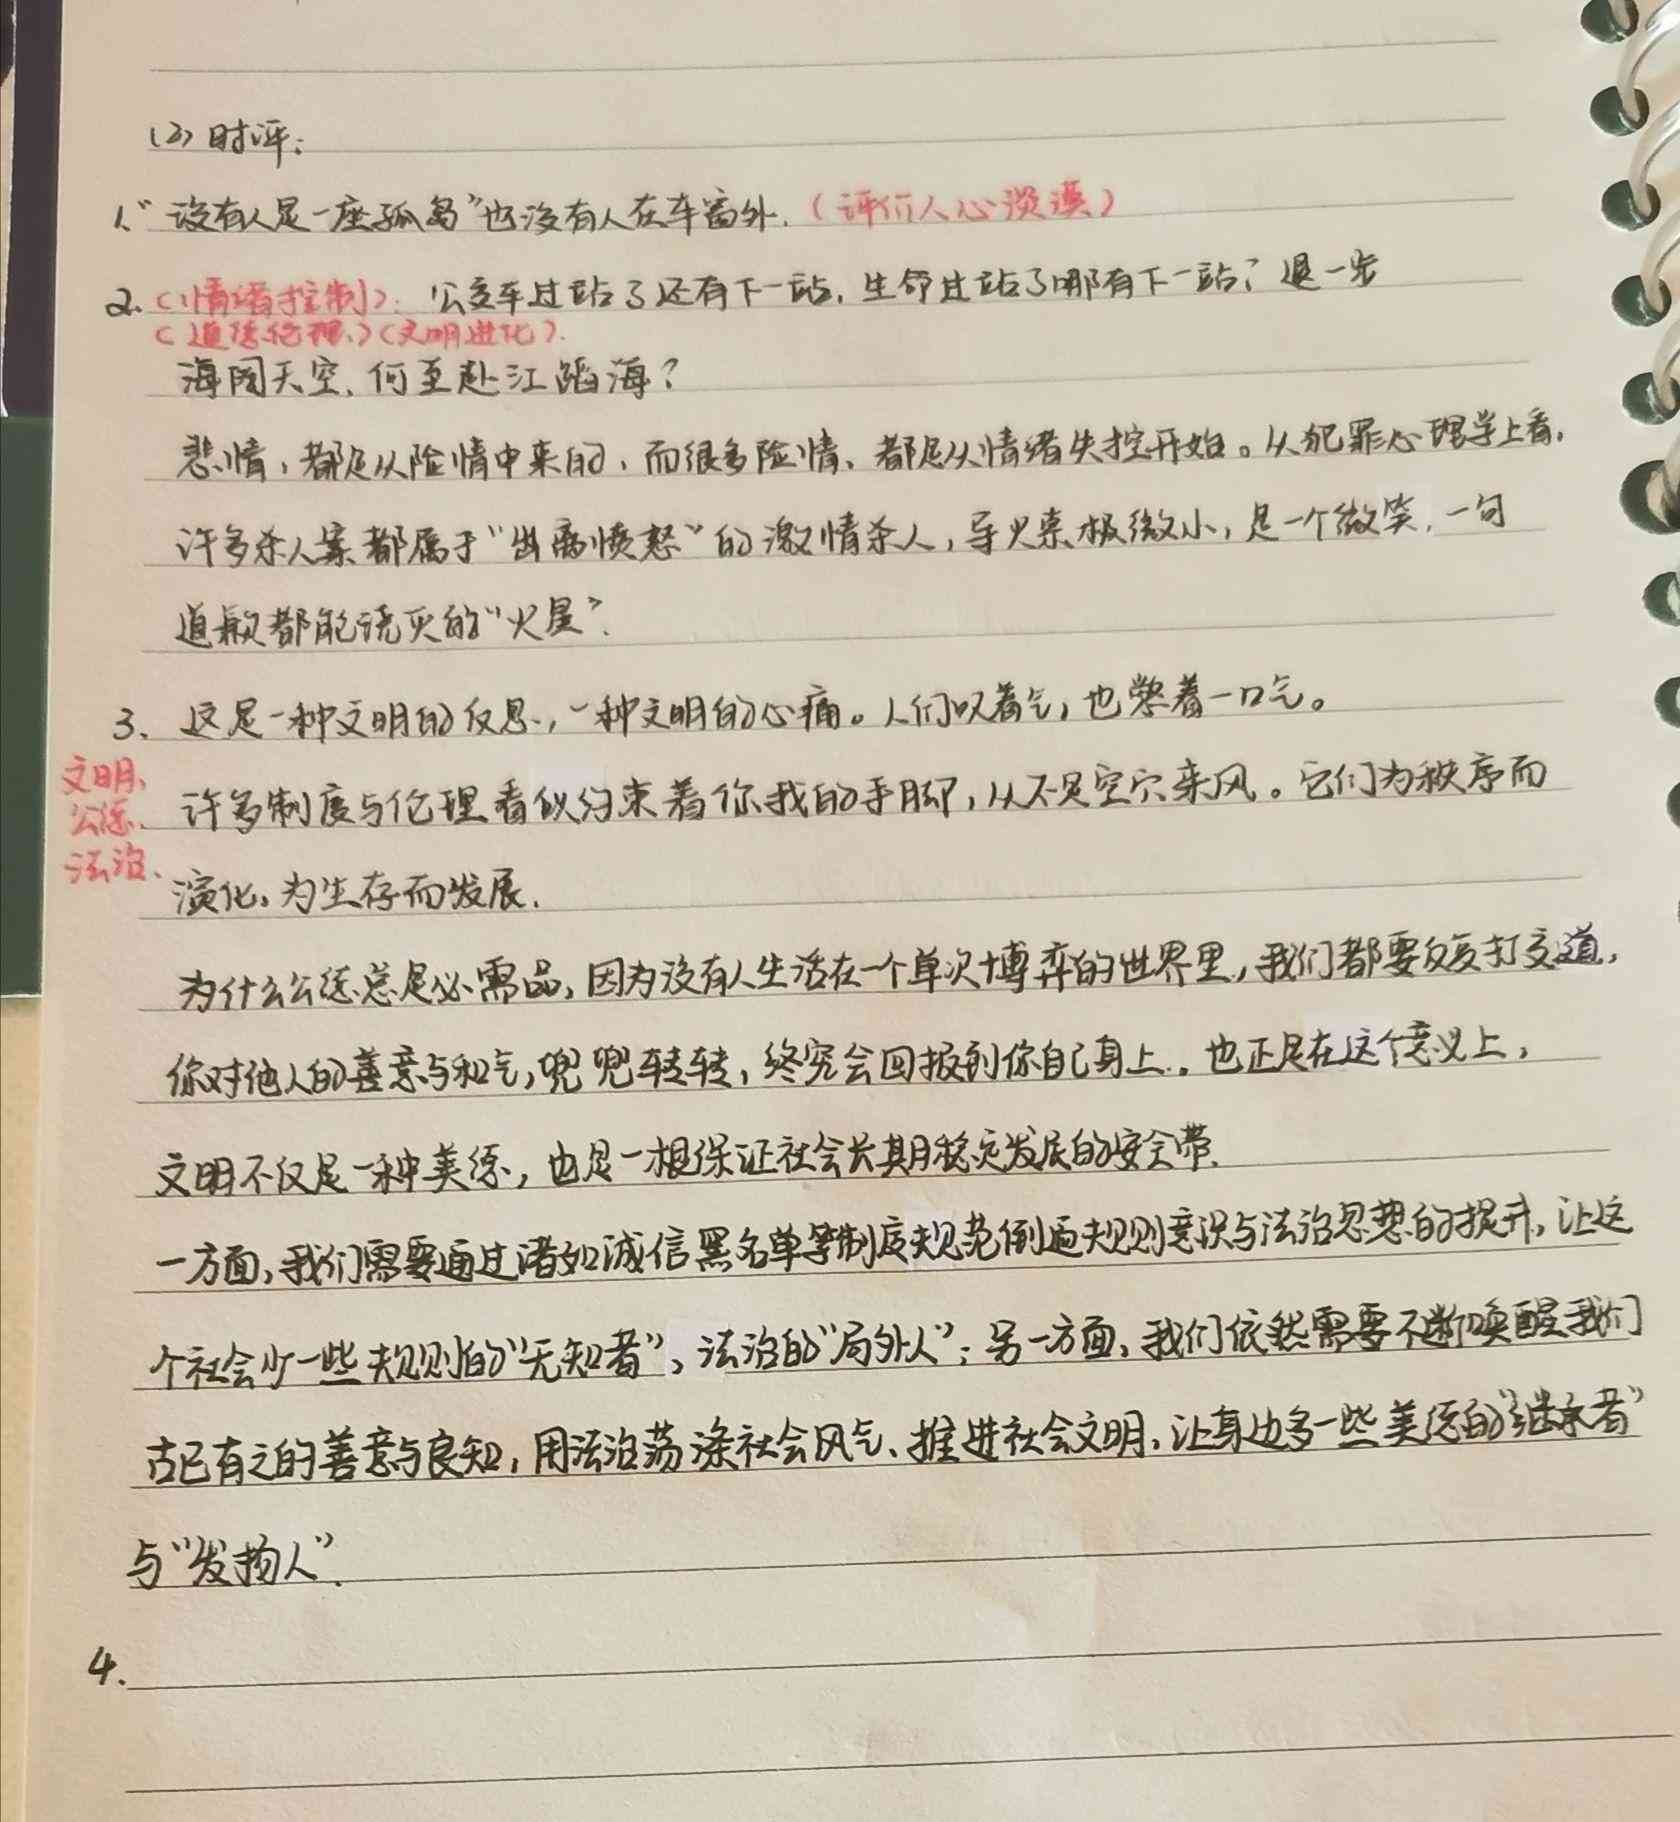 (2)时评:
1.“没有人是一座孤岛”也没有人在车窗外.(评价人心淡漠)
2.(情绪控制):公交车过站了还有下一站,生命过站了哪有下一站?退一步
(道德伦理)(文明进化).
海阔天空,何至赴江蹈海?
悲情,都是从险情中来的,而很多险情、都是从情绪失控开始。从犯罪心理学上看,
许多杀人案都属于“出离愤怒”的激情杀人,导火索极微小,是一个微笑,一句
道歉都能浇灭的“火星”.
3、这是一种文明的反思,一种文明的心痛。人们叹着气,也憋着一口气。
文明、
许多制度与伦理看似约束着你我的手脚,从不是空穴来风。它们为秩序而
公德、
法治、
演化,为生存而发展.
为什么公德总是必需品,因为没有人生活在一个单次博弈的世界里,我们都要反复打交道,
你对他人的善意与和气,兜兜转转,终究会回报到你自己身上.。也正是在这个意义上,
文明不仅是一种美德,也是一根保证社会长期稳定发展的安全带.
一方面,我们需要通过诸如诚信黑名单等制度规范倒逼规则意识与法治思想的提升,让这
个社会少一些规则的“无知者”,法治的“局外人”;另一方面,我们依然需要不断唤醒我们
古已有之的善意与良知,用法治荡涤社会风气、推进社会文明,让身边多一些美德的“继承者”
与“发扬人”.
4.